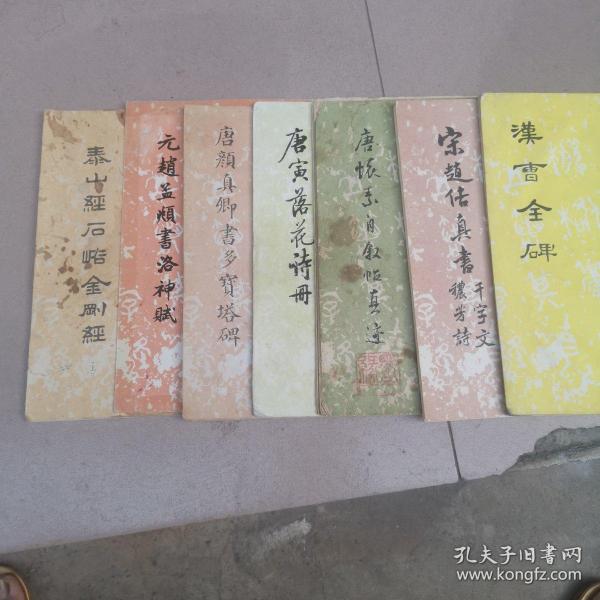 泰山經石峪金剛經
元趙孟頫書洛神賦
唐顏真卿書多寶塔碑
唐寅落花詩冊
唐懷素自叙帖真迹
宋趙佶真書千字文穠芳詩
漢曹全碑
孔夫子旧书网
www.kongfz.com